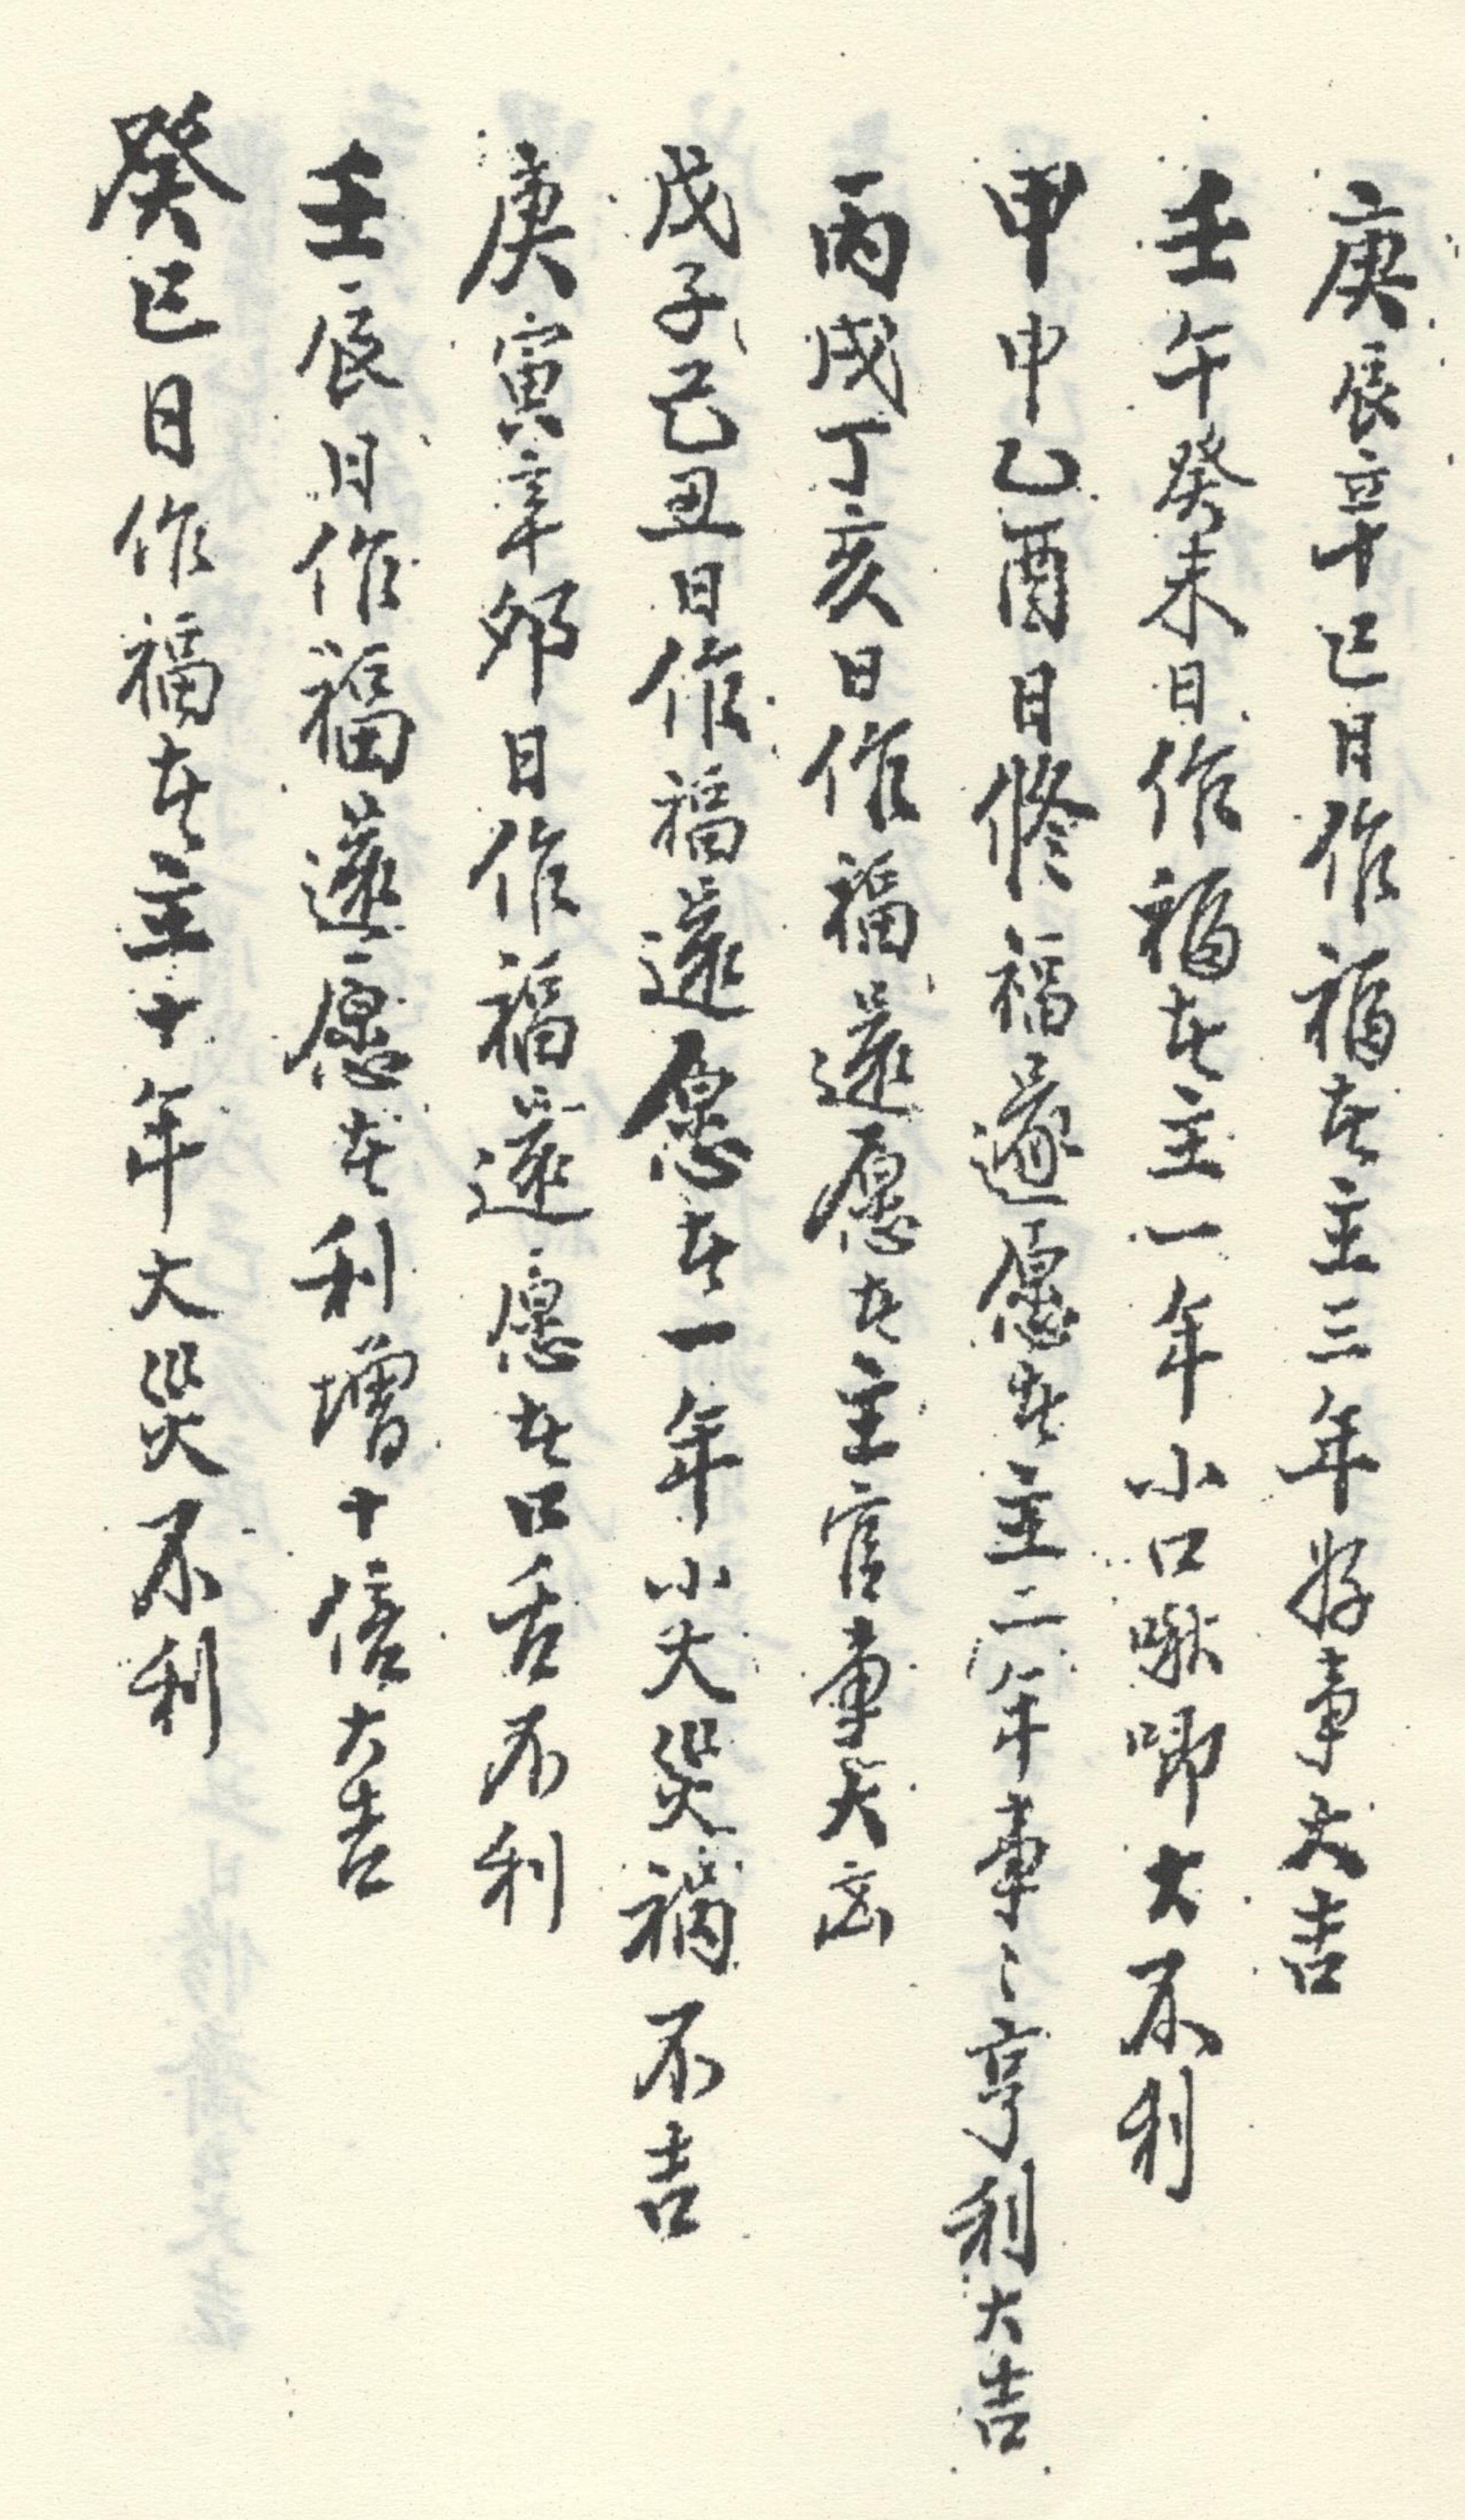 庚辰辛巳日作福者主三年好事大吉
壬午癸未日作福者主一年小口啾唧大不利
甲申乙酉日修福還愿者主二年事〻亨利大吉
丙戌丁亥日作福還愿者主官事大凶
戊子己丑日作福還愿者一年小大災禍不吉
庚寅辛卯日作福還愿者口舌不利
壬辰日作福還愿者利增十倍大吉
癸巳日作福者主十年大災不利